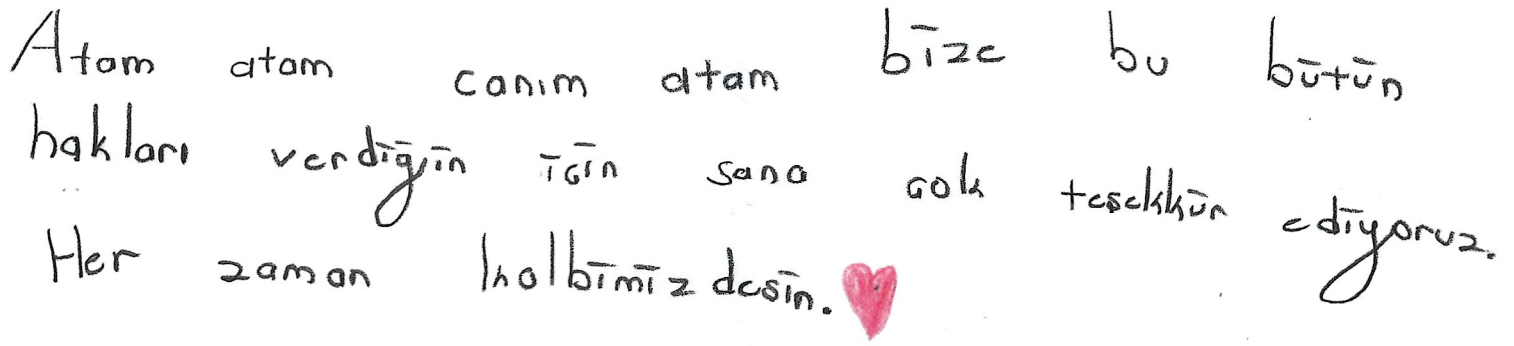 Atam atam canım atam bize bu bütün
hakları verdiğin için sana çok teşekkür ediyoruz.
Her zaman kalbimiz desin.